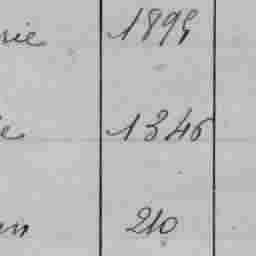 rie 1899
e 1346
en 210